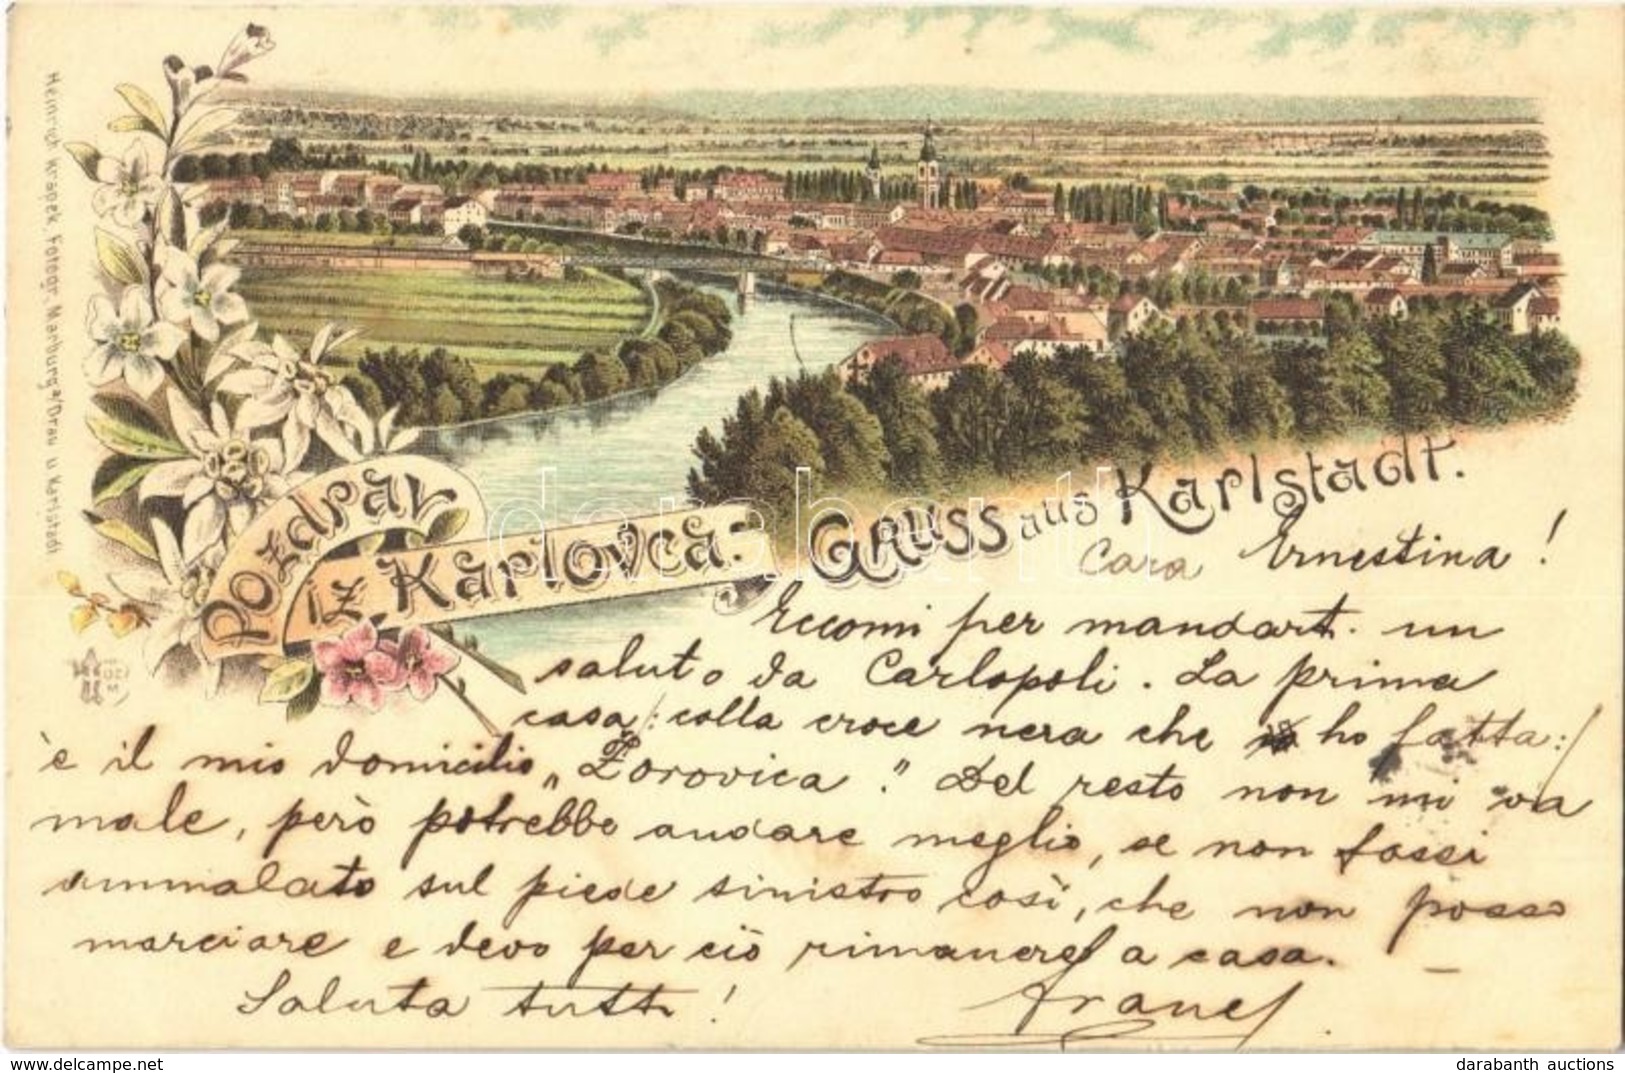 Heinrich Krapek, Fotogr. Marburg a/Drau u. Karlstadt
Pozdrav
iz Karlovca.
Gruss aus Karlstadt.
Cara Ernestina!
Eccomi per mandart. un
saluto da Carlopoli. La prima
casa /: colla croce nera che ho fatta :/
è il mio domicilio „Zorovica". Del resto non mi va
male, però potrebbe andare meglio, se non fossi
ammalato sul piede sinistro così, che non posso
marciare e devo per ciò rimanere a casa.
Saluta tutti!
databarabanth
darabanth auctions